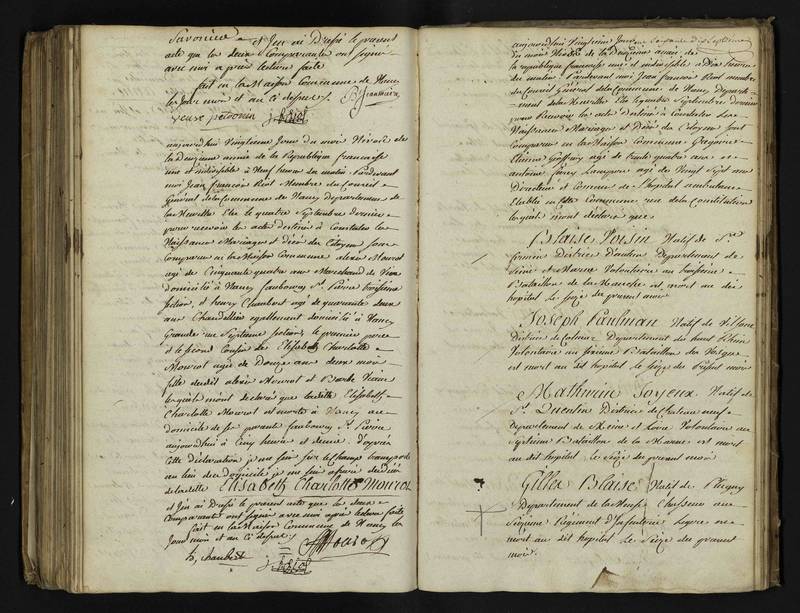 Savonière et J'en ai Dressé le présent
acte que les deux Comparants ont signé
avec moi après lecture faite
fait en la Maison Commune de Nancy
les Jour mois et an ci dessus
veuve
aujourdhui Vingtieme Jour du mois Nivose de
la Deuxieme année de la Republique francaise
une et indivisible à Neuf heures du matin Pardevant
moi Jean François Riot Membre du Conseil
Général de la Commune de Nancy département de
la Meurthe Elu le quatre Septembre dernier
pour recevoir les actes destinés à Constater les
Naissances Mariages et décès des Citoyens sont
Comparus en la Maison Commune alexis Mourot
agé de Cinquante quatre ans Marchand de Vin
domicilié à Nancy faubourg St Pierre troisieme
section, et henry Chambert agé de quarante deux
ans Chandellier egallement domicilié à Nancy
Grande rue Septieme section, le premier père
et le second Cousin de Elisabeth Charlotte
Mourot agée de Douze ans deux mois
fille dudit alexis Mourot et Barbe
lesquels m'ont déclaré que ladite Elisabeth
Charlotte Mourot est morte à Nancy au
domicile de ses parents faubourg St Pierre
aujourdhui à Cinq heures et demie. D'après
cette déclaration je me suis sur le champ transporté
au lieu du domicile je me suis assuré du décès
de ladite Elisabeth Charlotte Mourot
et J'en ai Dressé le présent acte que les deux
Comparants ont signé avec moi après lecture faite
fait en la Maison Commune de Nancy les
Jour mois et an ci dessus
Mourot
h, chambert
aujourdhui Vingtieme Jour
du mois Nivose de la Deuxieme année de
la republique francaise une et indivisible à Dix heures
du matin Pardevant moi Jean francois Riot membre
du Conseil Général de la Commune de Nancy départe-
-ment de la Meurthe Elu le quatre Septembre dernier
pour Recevoir les actes Destinés à Constater les
Naissances Mariages et Décès des Citoyens sont
Comparus en la Maison Commune Gregoire
Etienne Geoffroy agé de trente quatre ans et
antoine agé de Vingt Sept ans
Directeur et Commis de l'hopital ambulance
Etabli en cette Commune rue de la Constitution
lesquels m'ont déclaré que
Blaise Voisin Natif de St
District Département de
Seine et Marne Volontaire au troisieme
Bataillon de la Manche est mort au dit
hopital le Seize du présent mois
Joseph Paulman Natif de
District de Colmar Departement du haut Rhin
Volontaire au Bataillon des Vosges
est mort au dit hopital le Seize du présent mois
Mathurin Soyeux Natif de
St Quentin District de Chateauneuf
Departement de Eure et Loire Volontaire au
septieme Bataillon de la Marne est mort
au dit hopital le Seize du présent mois
Gilles Blaise Natif de Pugny
Département de la Meuse Chasseur au
Regiment d'Infanterie legere
mort au dit hopital le Seize du présent
mois.